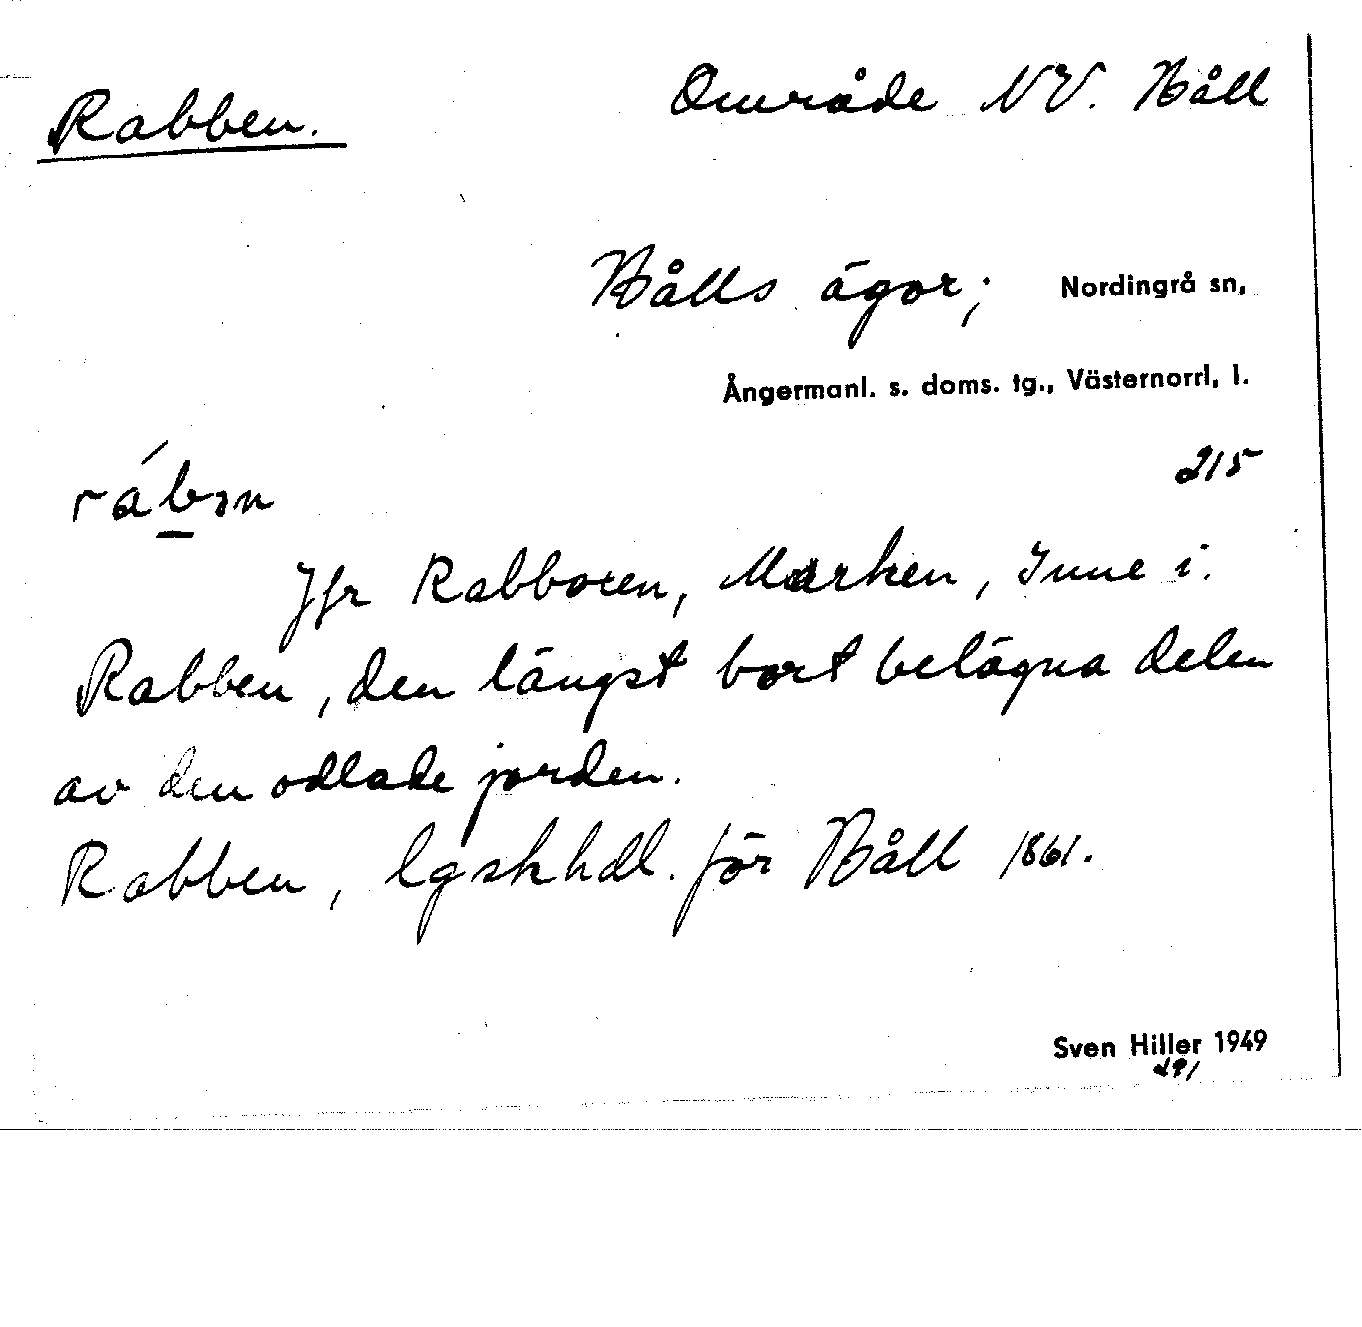 Rabben. Område NV. Båll
Bålls ägor; Nordingrå sn,
Ångermanl. s. doms. tg., Västernorrl, l.
215
rábən
Jfr Rabboren, Marken, Inne i.
Rabben, den längst bort belägna delen
av den odlade jorden.
Rabben, lgskhdl. för Båll 1861.
Sven Hiller 1949